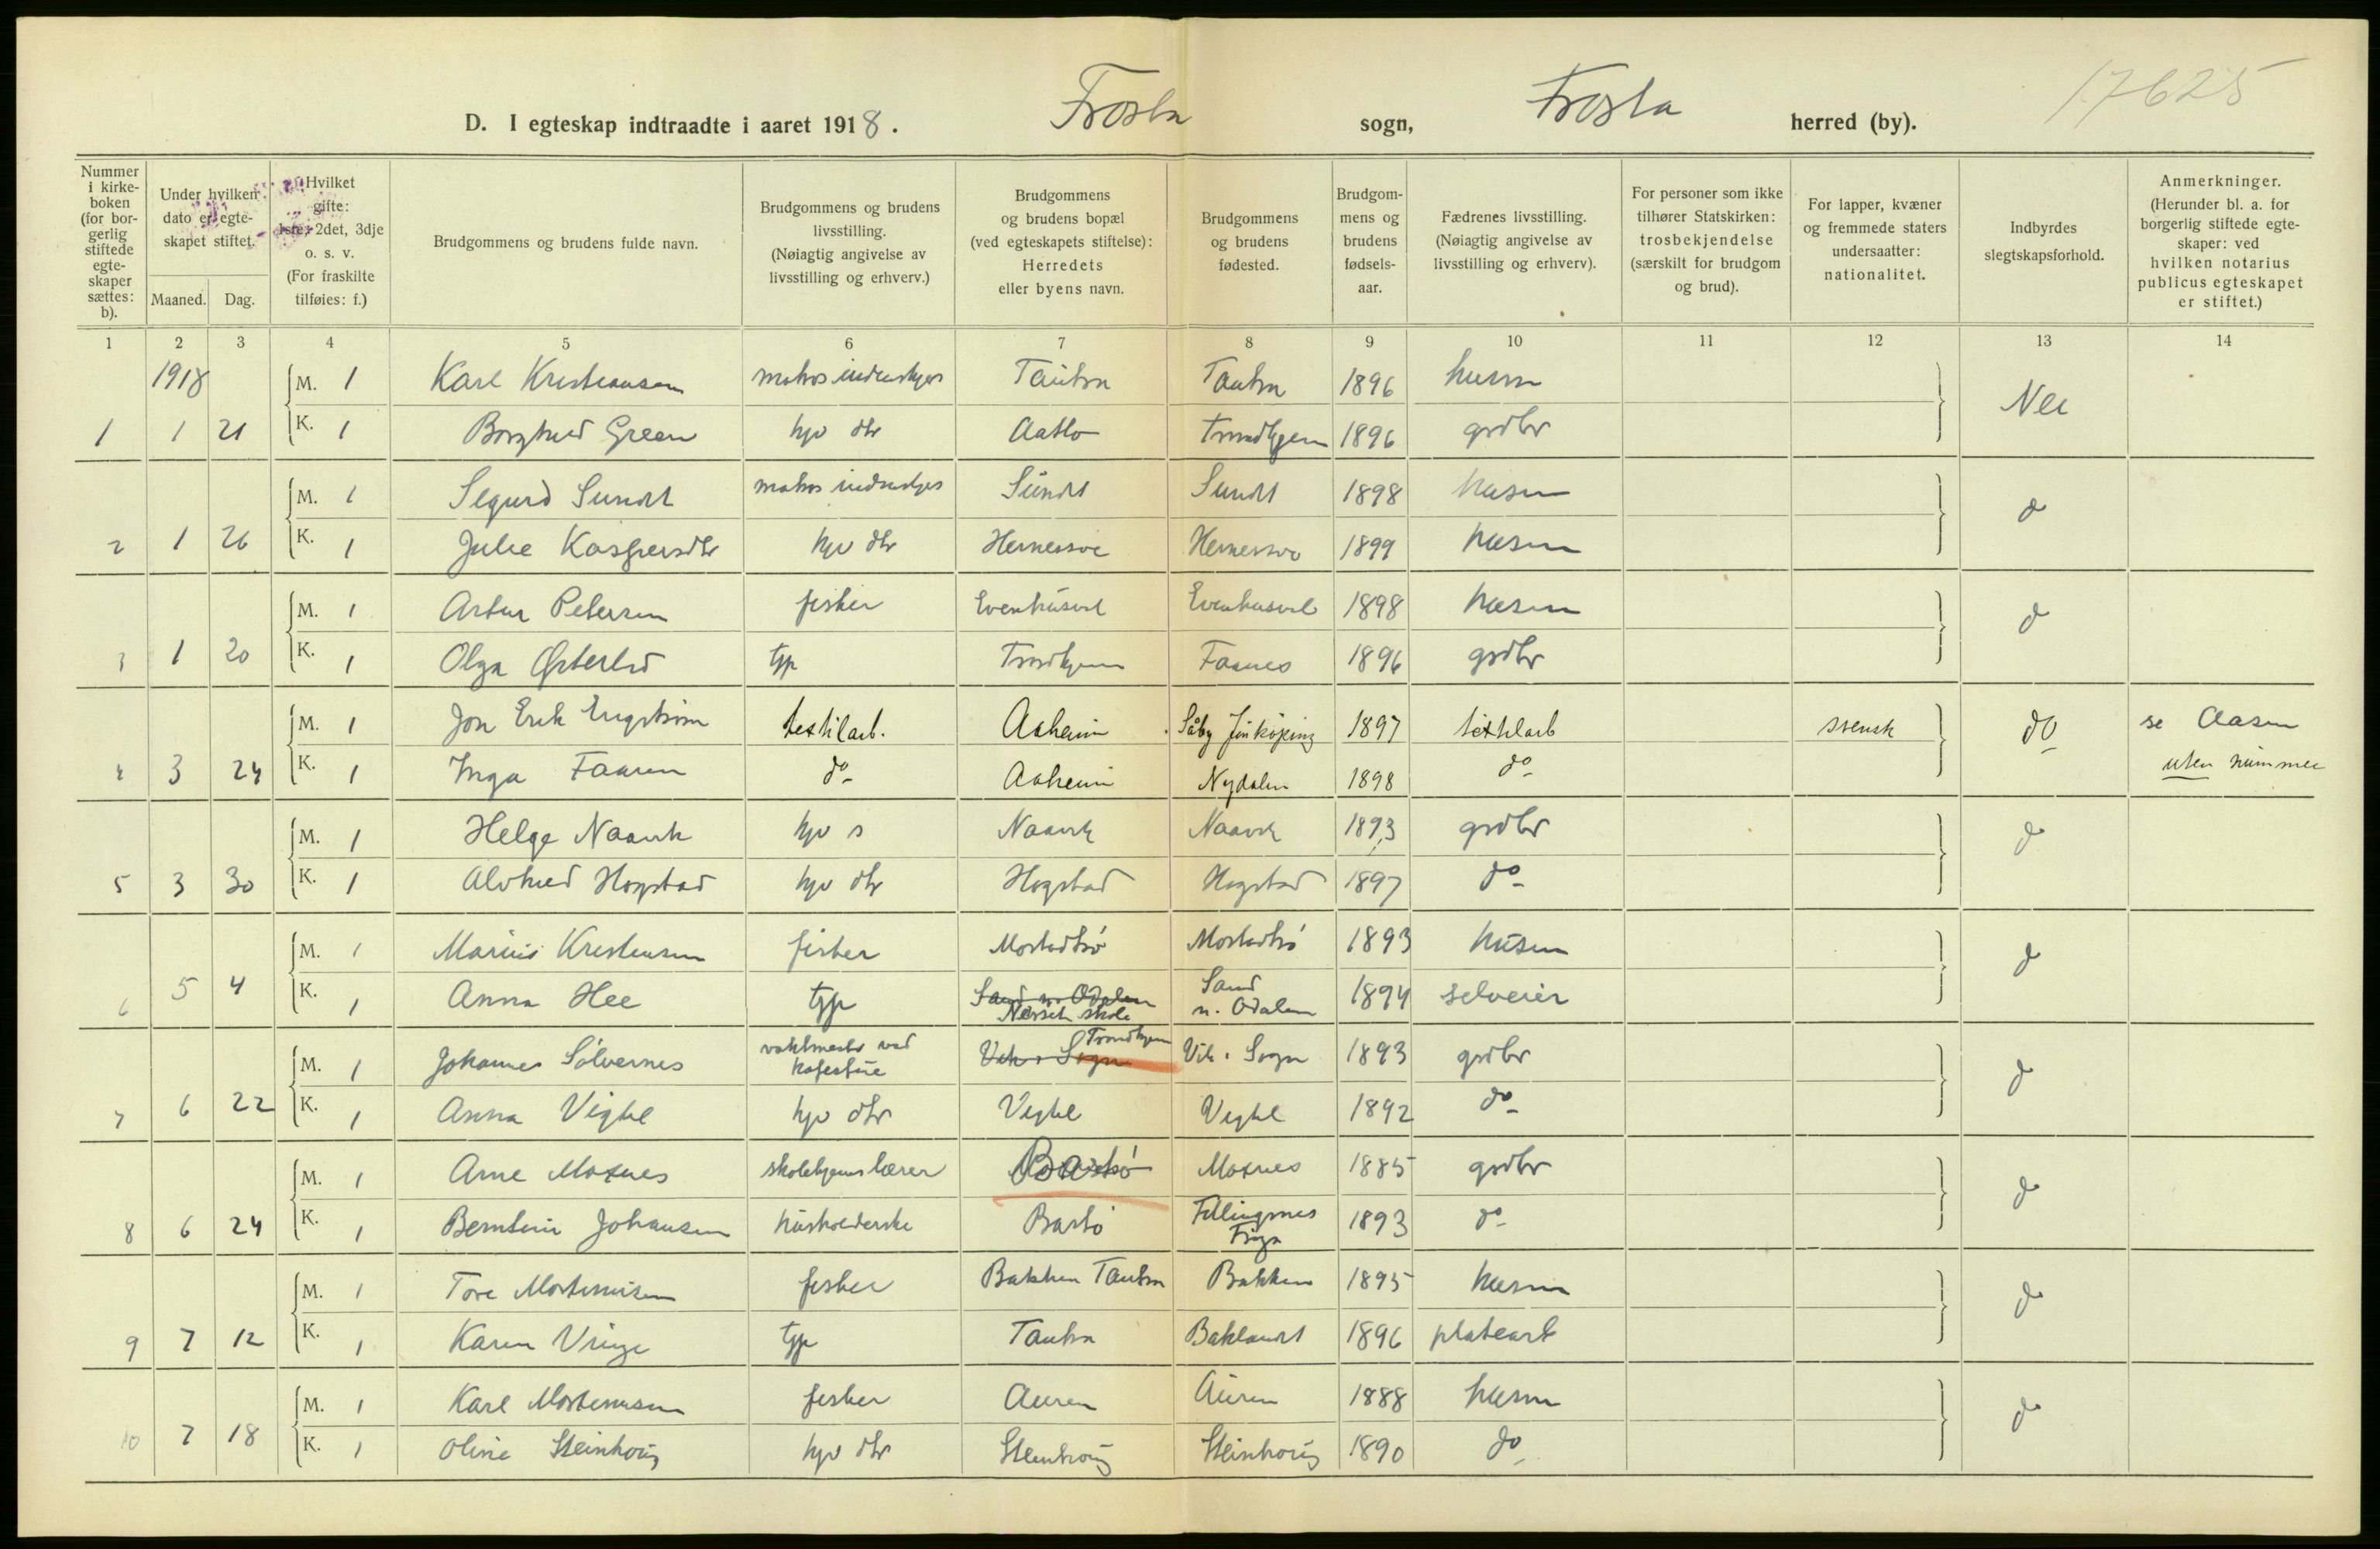 17625
D. I egteskap indtraadte i aaret 1918. Frosta sogn, Frosta herred (by).
Nummer i kirke-boken (for bor-gerlig stiftede egte-skaper sættes: b).
Under hvilken dato er egte-skapet stiftet. Maaned. Dag.
Hvilket gifte: 1ste, 2det, 3dje o. s. v. (For fraskilte tilføies: f.)
Brudgommens og brudens fulde navn.
Brudgommens og brudens livsstilling. (Nøiagtig angivelse av livsstilling og erhverv.)
Brudgommens og brudens bopæl (ved egteskapets stiftelse): Herredets eller byens navn.
Brudgommens og brudens fødested.
Brudgom-mens og brudens fødsels-aar.
Fædrenes livsstilling. (Nøiagtig angivelse av livsstilling og erhverv).
For personer som ikke tilhører Statskirken: trosbekjendelse (særskilt for brudgom og brud).
For lapper, kvæner og fremmede staters undersaatter: nationalitet.
Indbyrdes slegtskapsforhold.
Anmerkninger. (Herunder bl. a. for borgerlig stiftede egte-skaper: ved hvilken notarius publicus egteskapet er stiftet.)
1 2 3 4 5 6 7 8 9 10 11 12 13 14
1918 M. 1 Karl Kristiansen Tautra Tautra 1896 husm Nei
1 1 21 K. 1 Borghild Green hjv dtr Trondhjem 1896 grdbr
M. 1 Sigurd Sundt Sundt Sundt 1898 husm do
2 1 26 K. 1 Julie Kaspersdtr hjv dtr 1899 husm
M. 1 Artur Petersen fisker Evenhusvl Evenhusvl 1898 husm do
3 1 20 K. 1 Olga Østerlid typ Trondhjem Faanes 1896 grdbr
M. 1 Jon Erik Engstrøm textilarb. Aaheim Såby Jönköping 1897 textilarb svensk do se Aasen
4 3 24 K. 1 Inga Faaren do Aaheim Nydalen 1898 do uten nummer
M. 1 Helge Naavik hjv s Naavik Naavik 1893 grdbr do
5 3 30 K. 1 Alvhild Hogstad hjv dtr Hogstad Hogstad 1897 do
M. 1 Marius Kristensen fisker Mostadtrø Mostadtrø 1893 husm do
6 5 4 K. 1 Anna Hee typ Sand n. Odalen Neset skole Sand n. Odalen 1894 selveier
M. 1 Johannes Sølvernes vaktmester ved Kafestue Vik i Sogn Trondhjem Vik i Sogn 1893 grdbr do
7 6 22 K. 1 Anna Vigtil hjv dtr Vigtil Vigtil 1892 do
M. 1 Arne Moxnes skolehjemslærer Moxnes 1885 grdbr do
8 6 24 K. 1 Berntine Johansen husholderske Bastø Fillingsnes Frøya 1893 do
M. 1 Tore Mortensen fisker Bakken Tautra Bakken 1895 husm do
9 7 12 K. 1 Karen Vinge typ Tautra Baklandt 1896 platearb
M. 1 Karl Mortensen fisker Auren Auren 1888 husm do
10 7 18 K. 1 Oline Steinhoug hjv dtr Steinhoug Steinhoug 1890 do